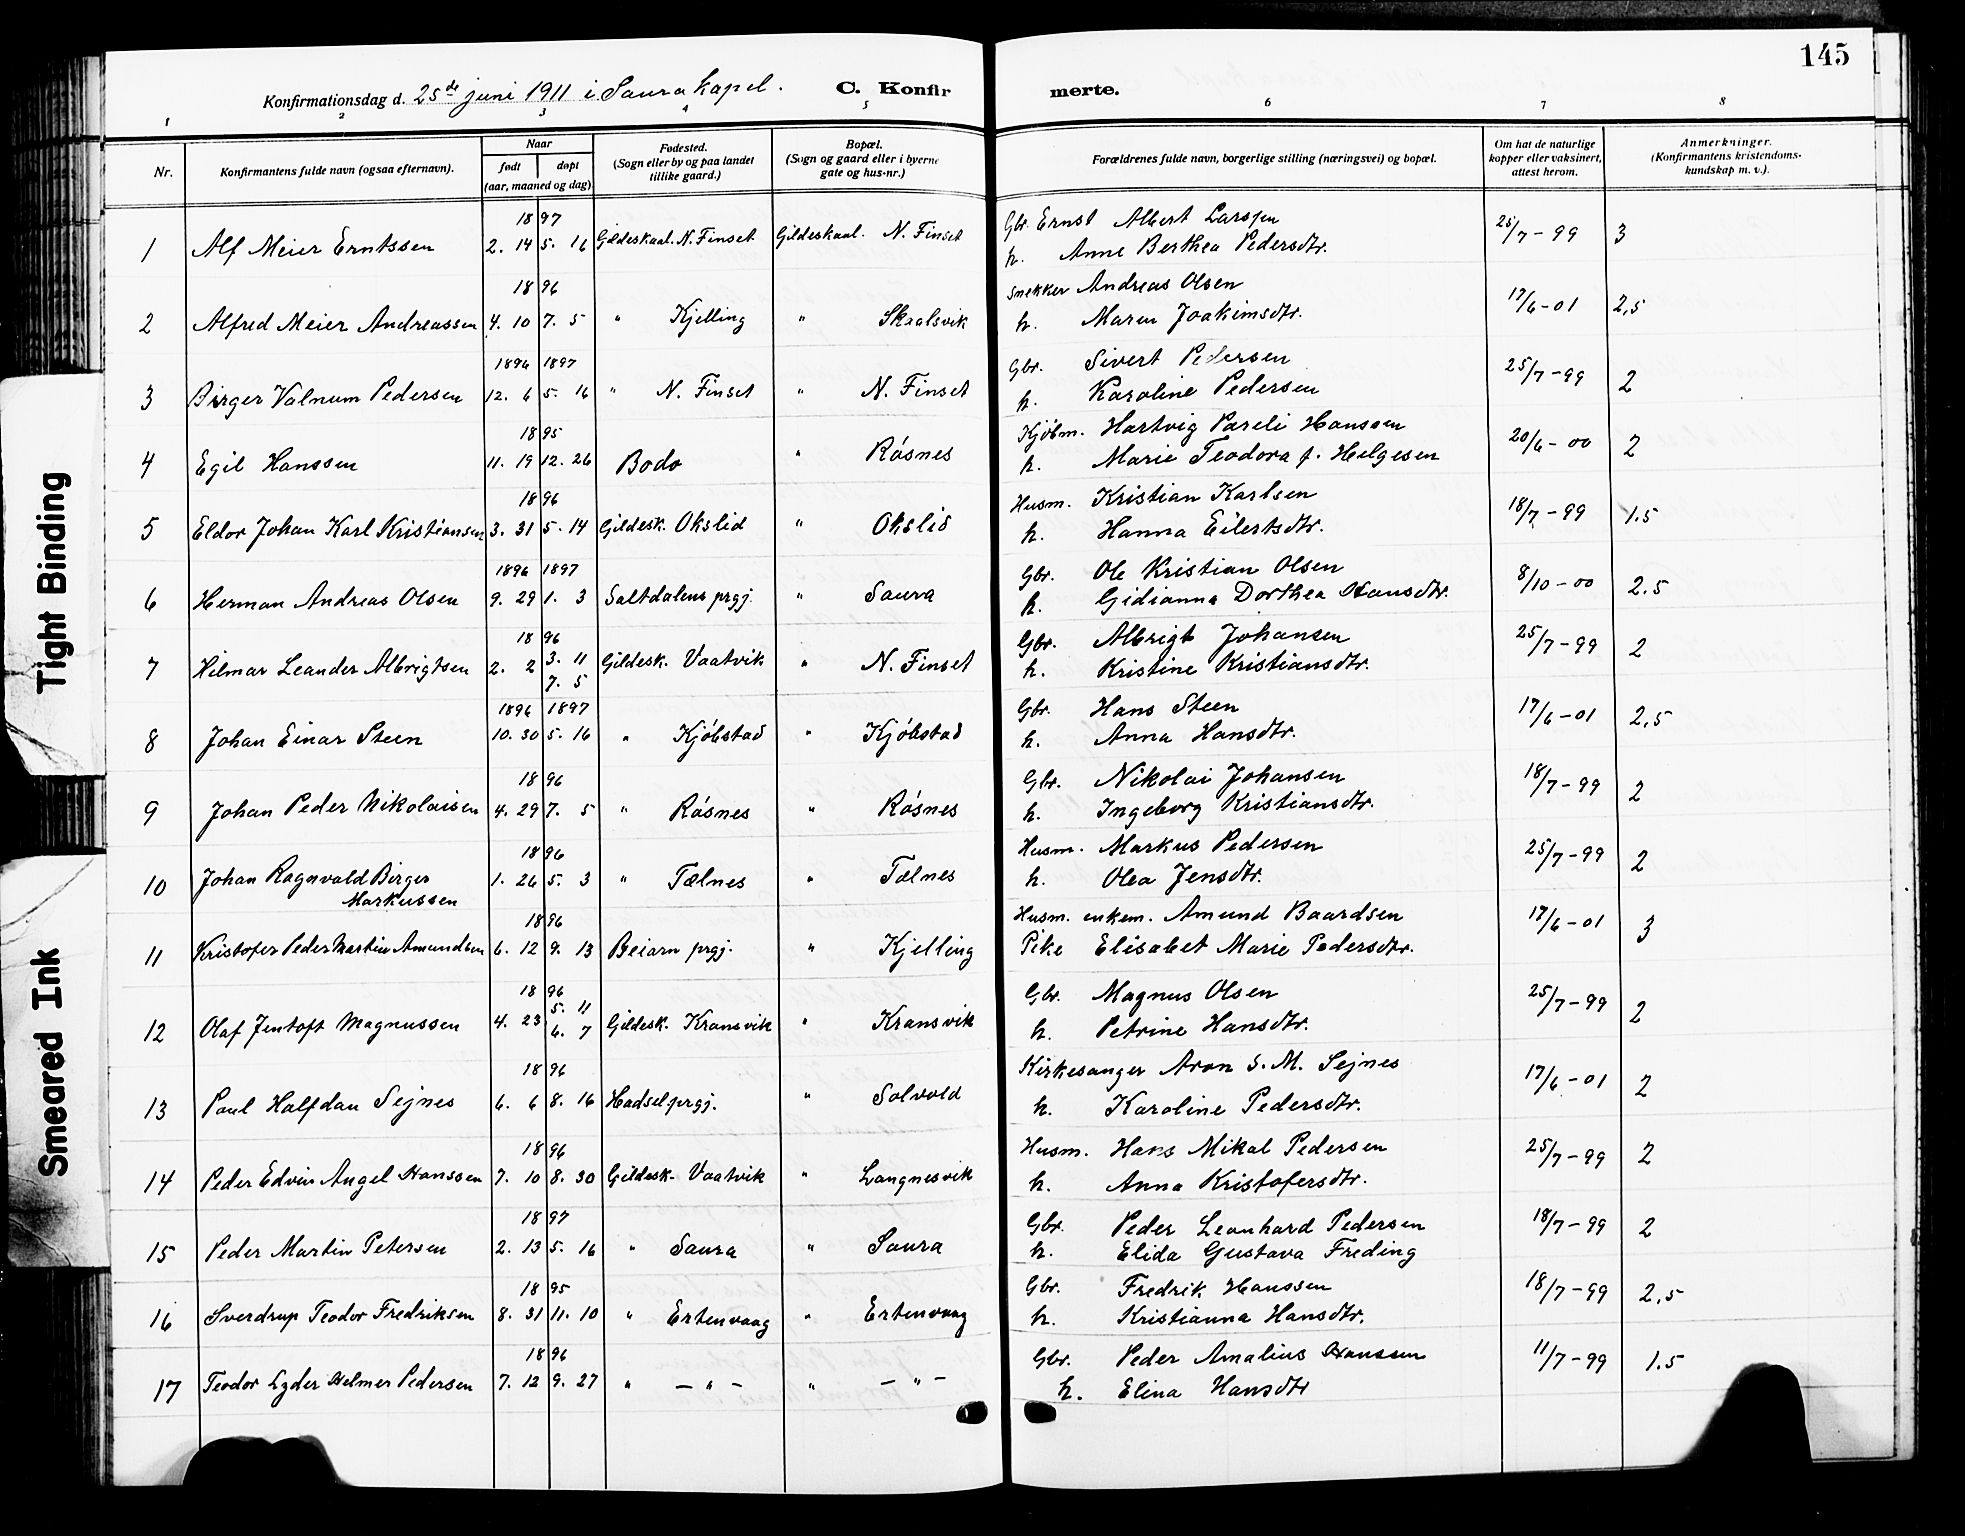 145
Konfirmationsdag d. 25de juni 1911 i Saura kapel. C. Konfirmerte.
1 2 3 4 5 6 7 8
Nr. Konfirmantens fulde navn (ogsaa efternavn). Naar født døpt (aar, maaned og dag) Fødested. (Sogn eller by og paa landet tillike gaard.) Bopæl. (Sogn og gaard eller i byerne gate og hus-nr.) Forældrenes fulde navn, borgerlige stilling (næringsvei) og bopæl. Om hat de naturlige kopper eller vaksinert, attest herom. Anmerkninger. (Konfirmantens kristendomskundskap m. v.).
1 Alf Meier Erntssen 1897 2. 14 5. 16 Gildeskaal. N. Finset Gildeskaal. N. Finset Gbr. Ernst Albert Larssen 25/7-99 3
h. Anne Berthea Pedersdtr.
2 Alfred Meier Andreassen 1896 4. 10 7. 5 " Kjelling " Skaalsvik Snekker Andreas Olsen 17/6-01 2,5
h. Maren Joakimsdtr.
3 Birger Valnum Pedersen 1896 1897 12. 6 5. 16 " N. Finset " N. Finset Gbr. Sivert Pedersen 25/7-99 2
h. Karoline Pedersen
4 Egil Hanssen 1895 11. 19 12. 26 Bodø " Røsnes Kjøbm. Hartvig Pareli Hanssen 20/6-00 2
h. Marie Teodora f. Helgesen
5 Eldor Johan Karl Kristiansen 1896 3. 31 5. 14 Gildesk. Okslid " Okslid Husm. Kristian Karlsen 18/7-99 1.5
h. Hanna Eilertsdtr.
6 Herman Andreas Olsen 1896 1897 9. 29 1. 3 Saltdalens prgj. " Saura Gbr. Ole Kristian Olsen 8/10-00 2.5
h. Gidianna Dorthea Hansdtr.
7 Hilmar Leander Albrigtsen 1896 2. 2 3. 11 7. 5 Gildesk. Vaatvik " N. Finset Gbr. Albrigt Johansen 25/7-99 2
h. Kristine Kristiansdtr.
8 Johan Einar Steen 1896 1897 10. 30 5. 16 " Kjøbstad " Kjøbstad Gbr. Hans Steen 17/6-01 2,5
h. Anna Hansdtr.
9 Johan Peder Nikolaisen 1896 4. 29 7. 5 " Røsnes " Røsnes Gbr. Nikolai Johansen 18/7-99 2
h. Ingeborg Kristiansdtr.
10 Johan Ragnvald Birger Markussen 1896 1. 26 5. 3 " Tælnes " Tælnes Husm. Markus Pedersen 25/7-99 2
h. Olea Jensdtr.
11 Kristofer Peder Martin Amundsen 1896 6. 12 9. 13 Beiarn prgj. " Kjelling Husm. enkem. Amund Baardsen 17/6-01 3
Pike Elisabet Marie Pedersdtr.
12 Olaf Jentoft Magnussen 1896 4. 23 5. 11 6. 7 Gildesk. Kransvik " Kransvik Gbr. Magnus Olsen 25/7-99 2
h. Petrine Hansdtr.
13 Paul Halfdan Sejnes 1896 6. 6 8. 16 Hadsel prgj. " Solvold Kirkesanger Aron S. M. Sejnes 17/6-01 2
h. Karoline Pedersdtr.
14 Peder Edvin Angel Hanssen 1896 7. 10 8. 30 Gildesk. Vaatvik " Langnesvik Husm. Hans Mikal Pedersen 25/7-99 2
h. Anna Kristofersdtr.
15 Peder Martin Petersen 1897 2. 13 5. 16 " Saura " Saura Gbr. Peder Leonhard Pedersen 18/7-99 2
h. Elida Gustava Freding
16 Sverdrup Teodor Fredriksen 1895 8. 31 11. 10 " Ertenvaag " Ertenvaag Gbr. Fredrik Hanssen 18/7-99 2,5
h. Kristianna Hansdtr.
17 Teodor Lyder Helmer Pedersen 1896 7. 12 9. 27 " — " — " — " — Gbr. Peder Amalius Hanssen 11/7-99 1.5
h. Elina Hansdtr
Tight Binding
Smeared Ink